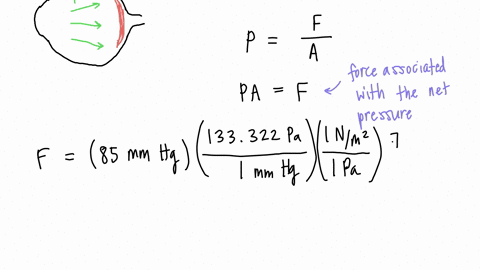 P = F / A
PA = F
force associated
with the net
pressure
F = (85 mm Hg) (133.322 Pa / 1 mm Hg) (1 N/m² / 1 Pa)